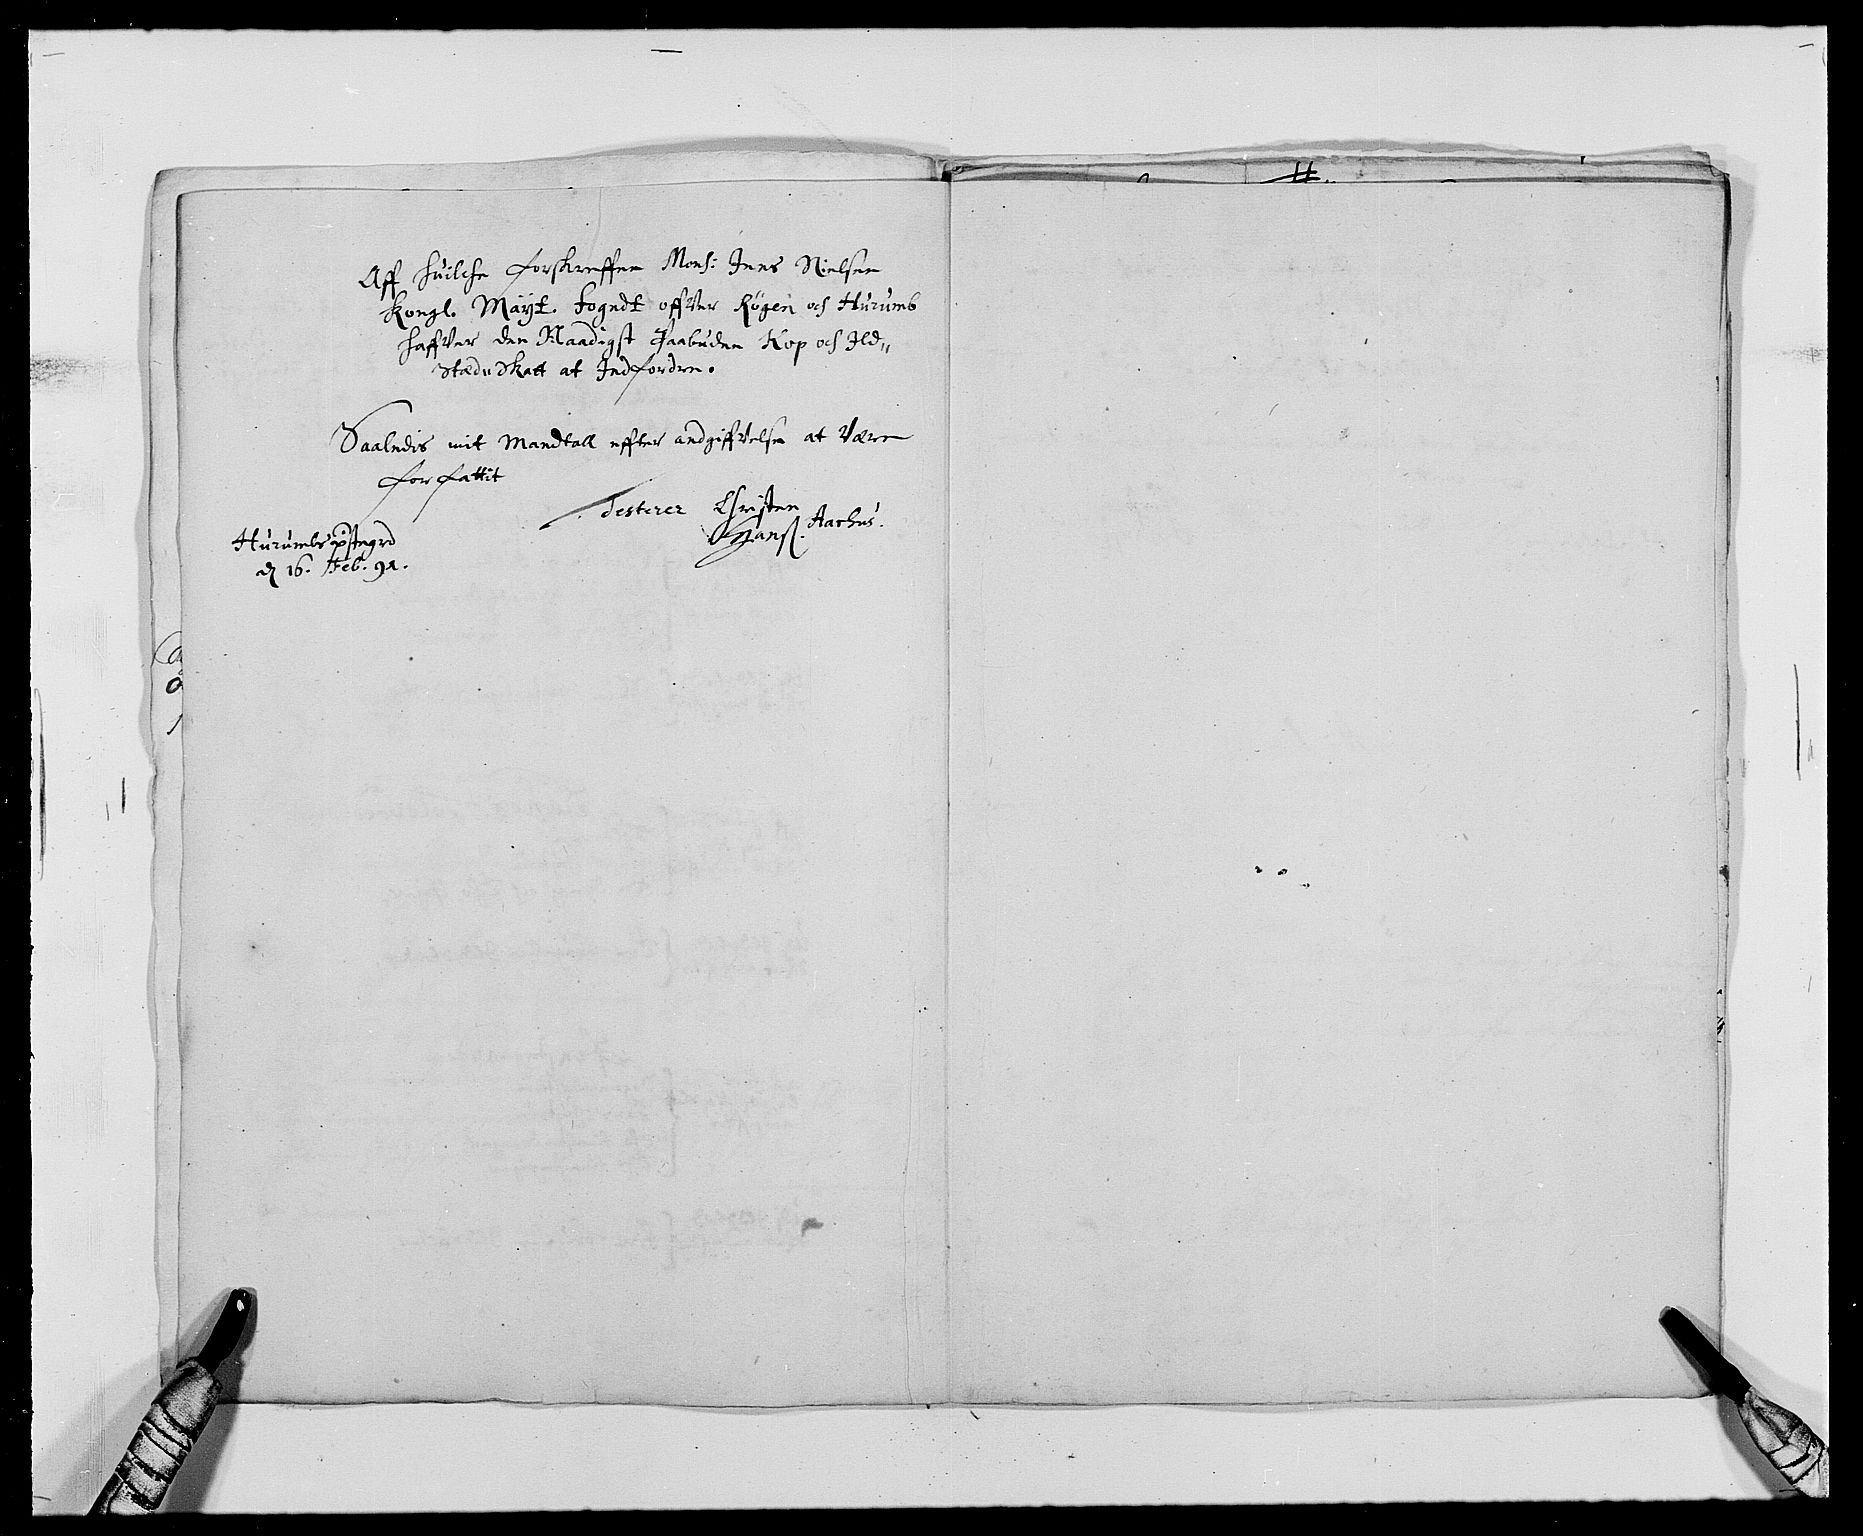 Aff huilche forskreffne Mons: Jens Nielsen
Kongl. Mayt. fogedt offver Røgen och Hurumb
haffver den Naadigst Paabudne Kop och Ild„
stæds skatt at Indfordre.
Saaledis mit Mandtall effter andgiffvelse at være
forfattit
Testerer Christen
Hanß. Aarhus.
Hurumbs
d 16. Feb. 91.